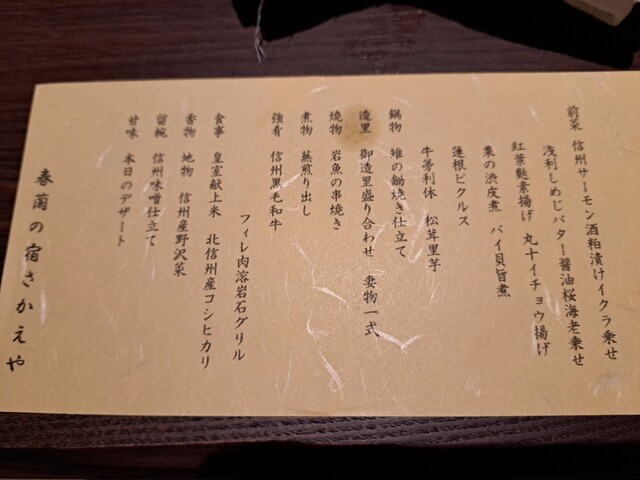 前菜 信州サーモン酒粕漬けイクラ乗せ
浅利しめじバター醤油桜海老乗せ
紅葉麩素揚げ 丸十イチョウ揚げ
栗の渋皮煮 バイ貝旨煮
蓮根ピクルス
牛蒡利休 松茸里芋
鍋物 雉の鋤焼き仕立て
造里 御造里盛り合わせ 妻物一式
焼物 岩魚の串焼き
煮物 蕪煎り出し
強肴 信州黒毛和牛
フィレ肉溶岩石グリル
食事 皇室献上米 北信州産コシヒカリ
香物 地物 信州産野沢菜
留椀 信州味噌仕立て
甘味 本日のデザート
春蘭の宿さかえや